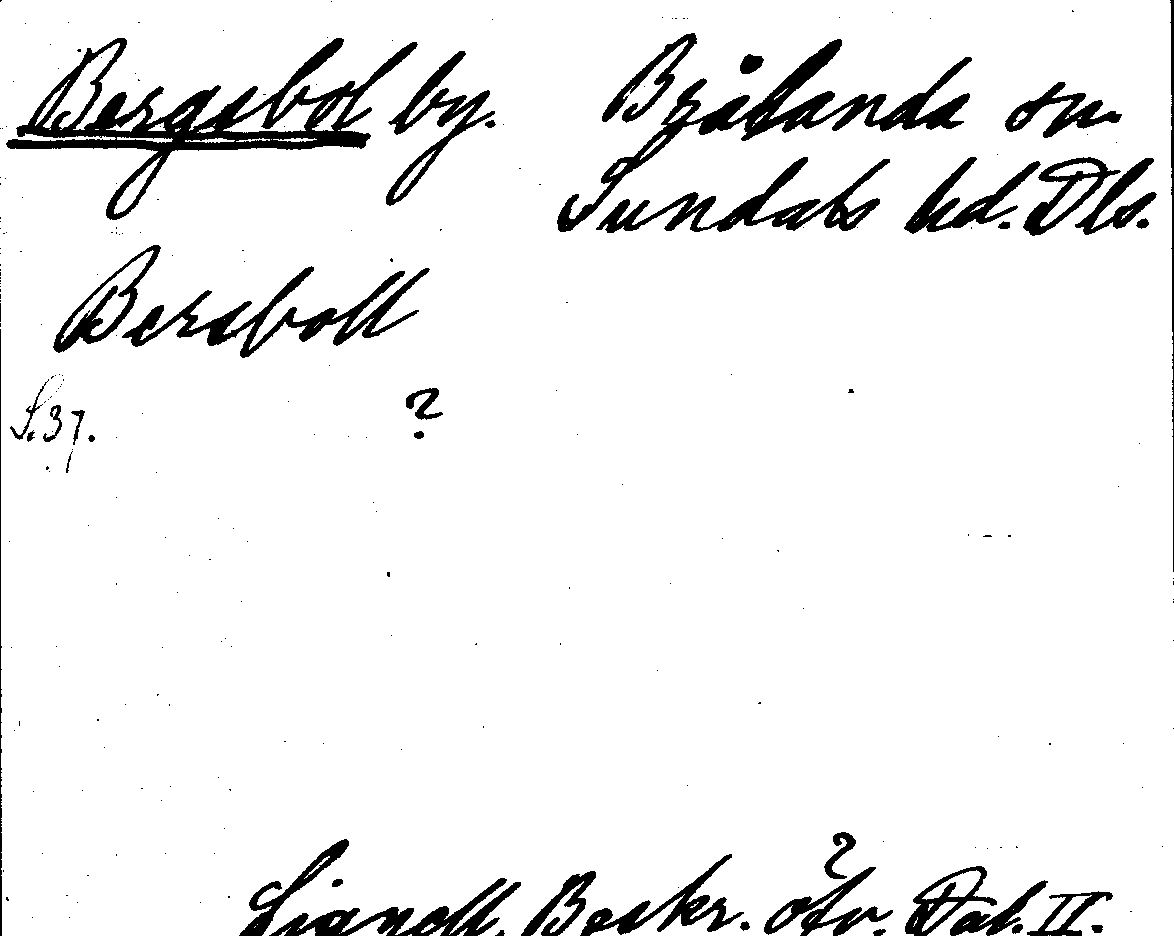 Bergsbol by. Brålanda sn.
Sundals hd. Dls.
Bersboll
S. 37. ?
Lignell, Beskr. öfv. Dal. II.